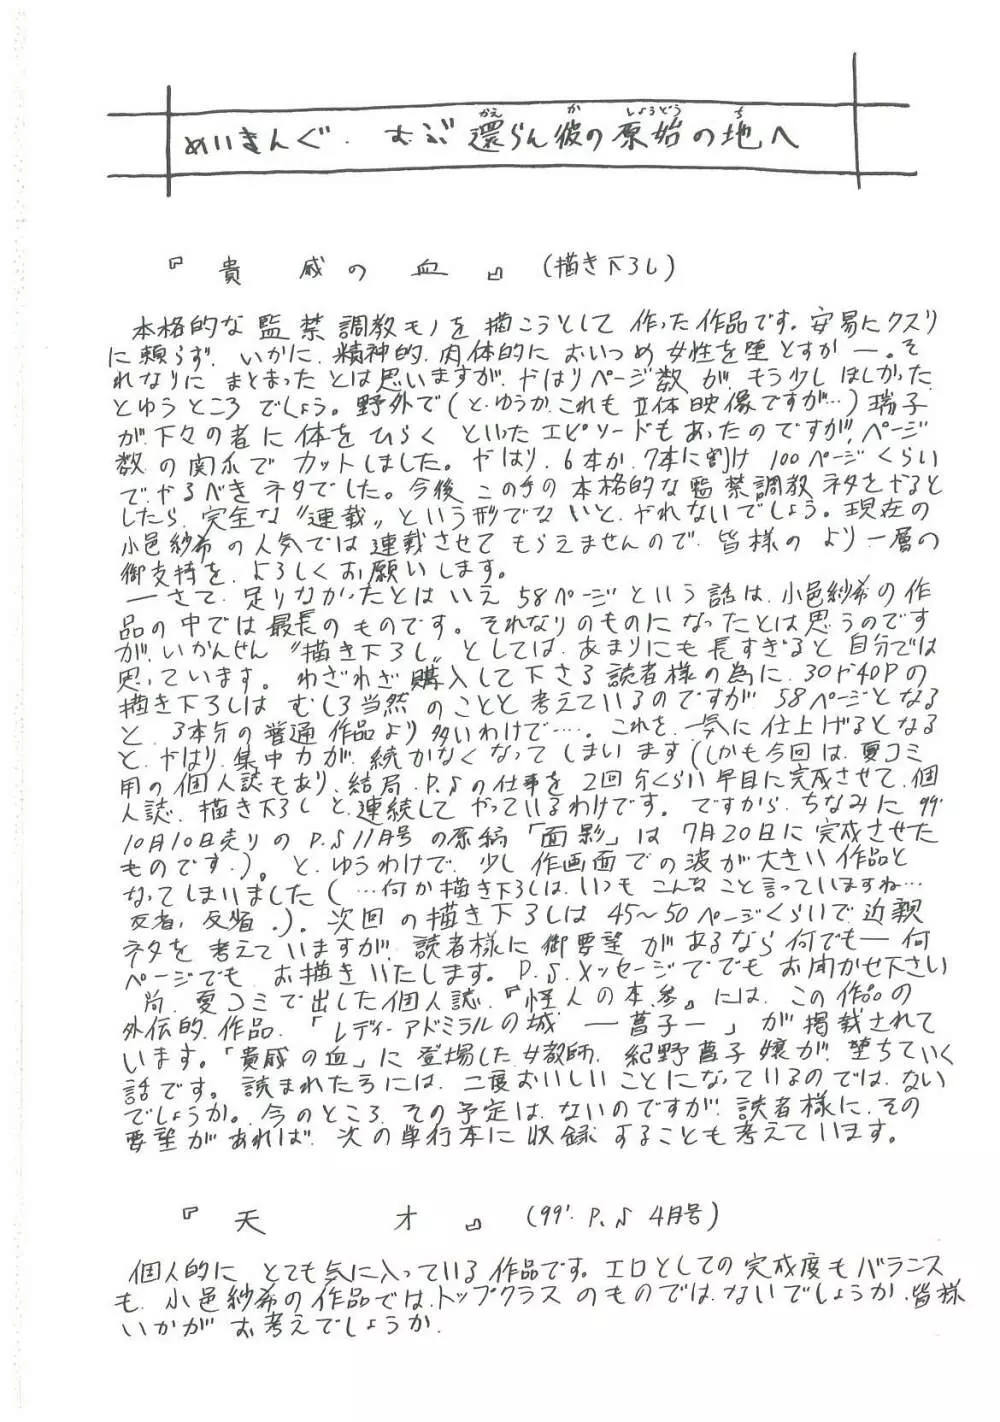 めいきんぐ．おぶ 還らん彼の原始の地へ
かえ か しょうどう ち
『貴 戚 の 血』(描き下ろし)
本格的な監禁調教モノを描こうとして作った作品です。安易にクスリ
に頼らず、いかに、精神的、肉体的においつめ女性を堕とすか―。そ
れなりにまとまったとは思いますが、やはりページ数が、もう少しほしかった
とゆうところでしょう。野外で(と、ゆうか、これも立体映像ですが…)瑞子
が、下々の者に体をひらくといったエピソードもあったのですが、ページ
数の関係でカットしました。やはり、6本か、7本に割け100ページくらい
で、やるべきネタでした。今後この手の本格的な監禁調教ネタをやると
したら、完全な〝連載〟という形でないと、やれないでしょう。現在の
小邑紗希の人気では連載させてもらえませんので、皆様のより一層の
御支持を、よろしくお願いします。
―さて、足りなかったとはいえ58ページという話は、小邑紗希の作
品の中では最長のものです。それなりのものになったとは思うのです
が、いかんせん〝描き下ろし〟としては、あまりにも長すぎると自分では
思っています。わざわざ購入して下さる読者様の為に、30や40Pの
描き下ろしはむしろ当然のことと考えているのですが58ページとなる
と、3本分の普通作品より多いわけで…。これを、一気に仕上げるとなる
と、やはり、集中力が、続かなくなってしまいます(しかも今回は、夏コミ
用の個人誌もあり、結局、P.Sの仕事を2回分くらい早目に完成させて、個
人誌、描き下ろしと、連続してやっているわけです。ですから、ちなみに99'
10月10日売りのP.S11月号の原稿「面影」は7月20日に完成させた
ものです.)。と、ゆうわけで、少し作画面での波が大きい作品と
なってしまいました(…何か描き下ろしは、いつもこんなこと言っていますね…
反省、反省.)。次回の描き下ろしは45～50ページくらいで、近親
ネタを考えていますが、読者様に御要望があるなら何でも―何
ページでもお描きいたします。P.S.メッセージででもお聞かせ下さい
尚、夏コミで出した個人誌、『怪人の本.参』には、この作品の
外伝的、作品、「レディーアドミラルの城 ―菖子―」が掲載されて
います。「貴戚の血」に登場した女教師、紀野菖子嬢が、堕ちていく
話です。読まれた方には、二度おいしいことになっているのでは、ない
でしょうか。今のところ、その予定は、ないのですが、読者様に、その
要望があれば、次の単行本に収録することも考えています。
『天 才』(99'. P.S 4月号)
個人的にとても気に入っている作品です。エロとしての完成度もバランス
も、小邑紗希の作品では、トップクラスのものでは、ないでしょうか、皆様
いかがお考えでしょうか.